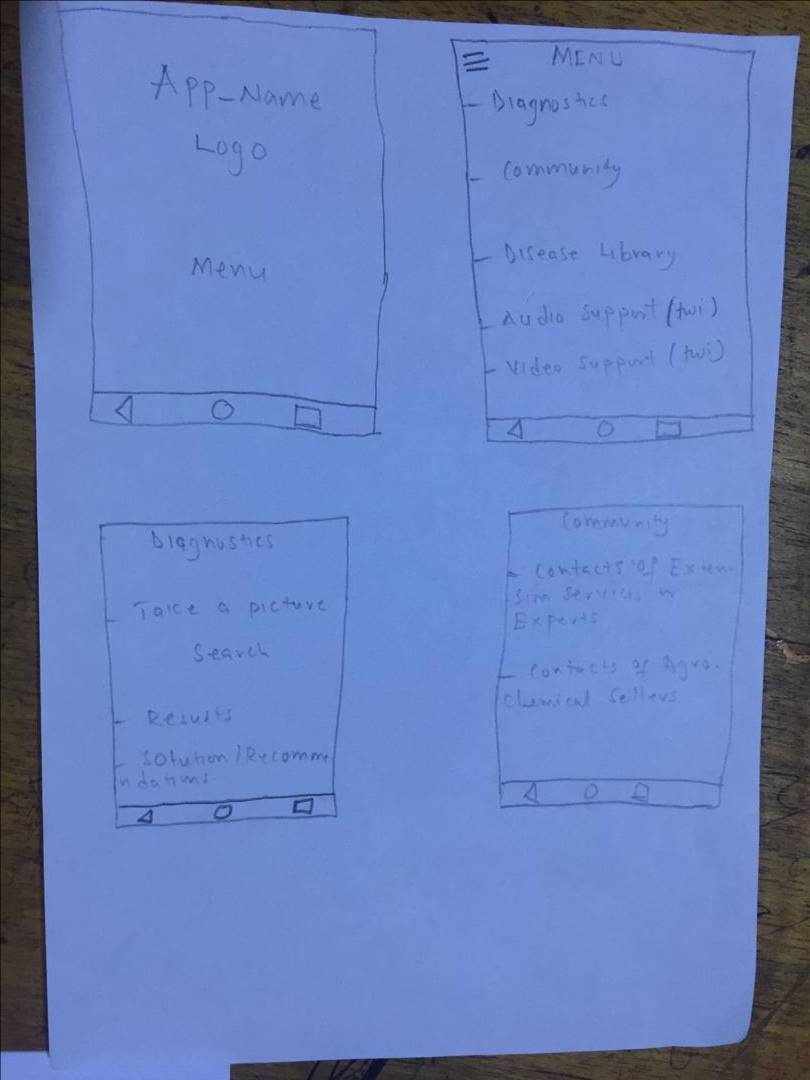 App-Name
Logo
Menu
MENU
- Diagnostics
- Community
- Disease Library
- Audio Support (twi)
- Video Support (twi)
Diagnostics
- Take a picture
Search
- Results
- Solution/Recomme
ndations
Community
- Contacts of Exten-
sion services or
Experts
- Contacts of Agro-
chemical Sellers